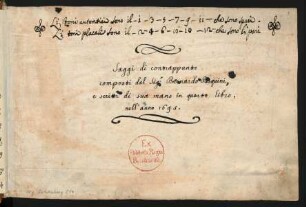 tuoni autentici sono il - 1 - 3 - 5 - 7 - 9 - 11 - che sono
tuoni plagali sono il - 2 - 4 - 6 - 8 - 10 - 12 - che sono
Saggi di contrappunto
composti dal Sig.r Bernardo Pasquini,
e scritti di sua mano in questo libro,
nell'anno 1695.
Ex
Biblioth. Regia
Berolinensi.